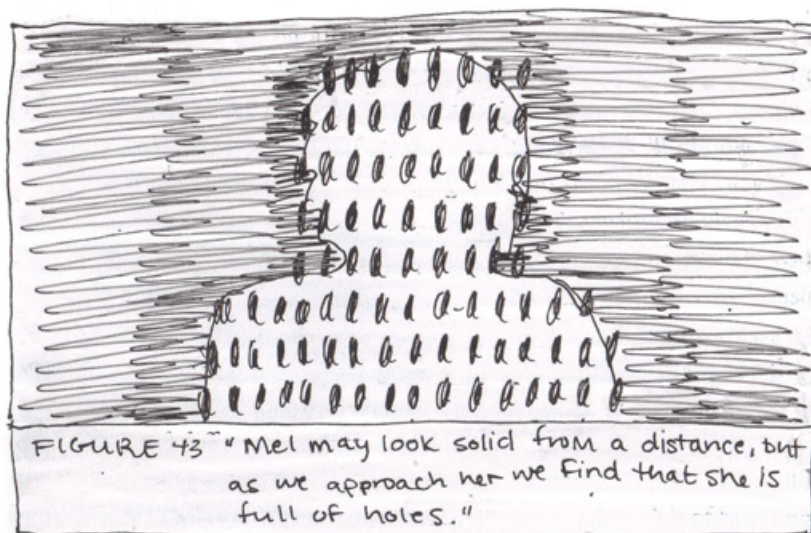 FIGURE 43 "Mel may look solid from a distance, but
as we approach her we find that she is
full of holes."